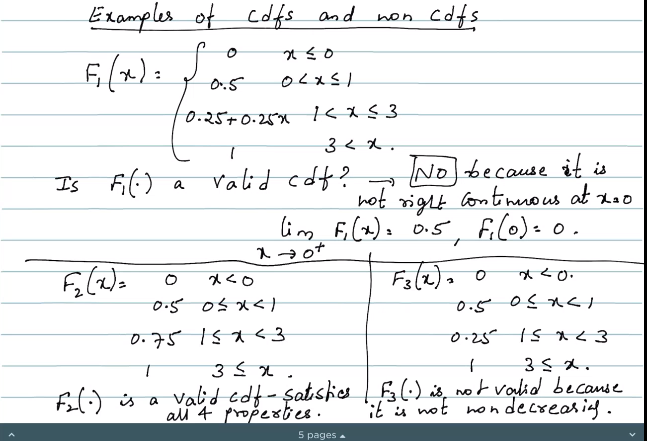 Examples of cdfs and non cdfs
F₁(x) = { 0 x ≤ 0
0.5 0 < x ≤ 1
0.25+0.25x 1 < x ≤ 3
1 3 < x.
Is F₁(·) a valid cdf? → NO because it is
not right continuous at x=0
lim F₁(x) = 0.5, F₁(0) = 0.
x → 0⁺
F₂(x) = 0 x < 0
0.5 0 ≤ x < 1
0.75 1 ≤ x < 3
1 3 ≤ x.
F₂(·) is a valid cdf - satisfies
all 4 properties.
F₃(x) = 0 x < 0.
0.5 0 ≤ x < 1
0.25 1 ≤ x < 3
1 3 ≤ x.
F₃(·) is not valid because
it is not nondecreasing.
5 pages